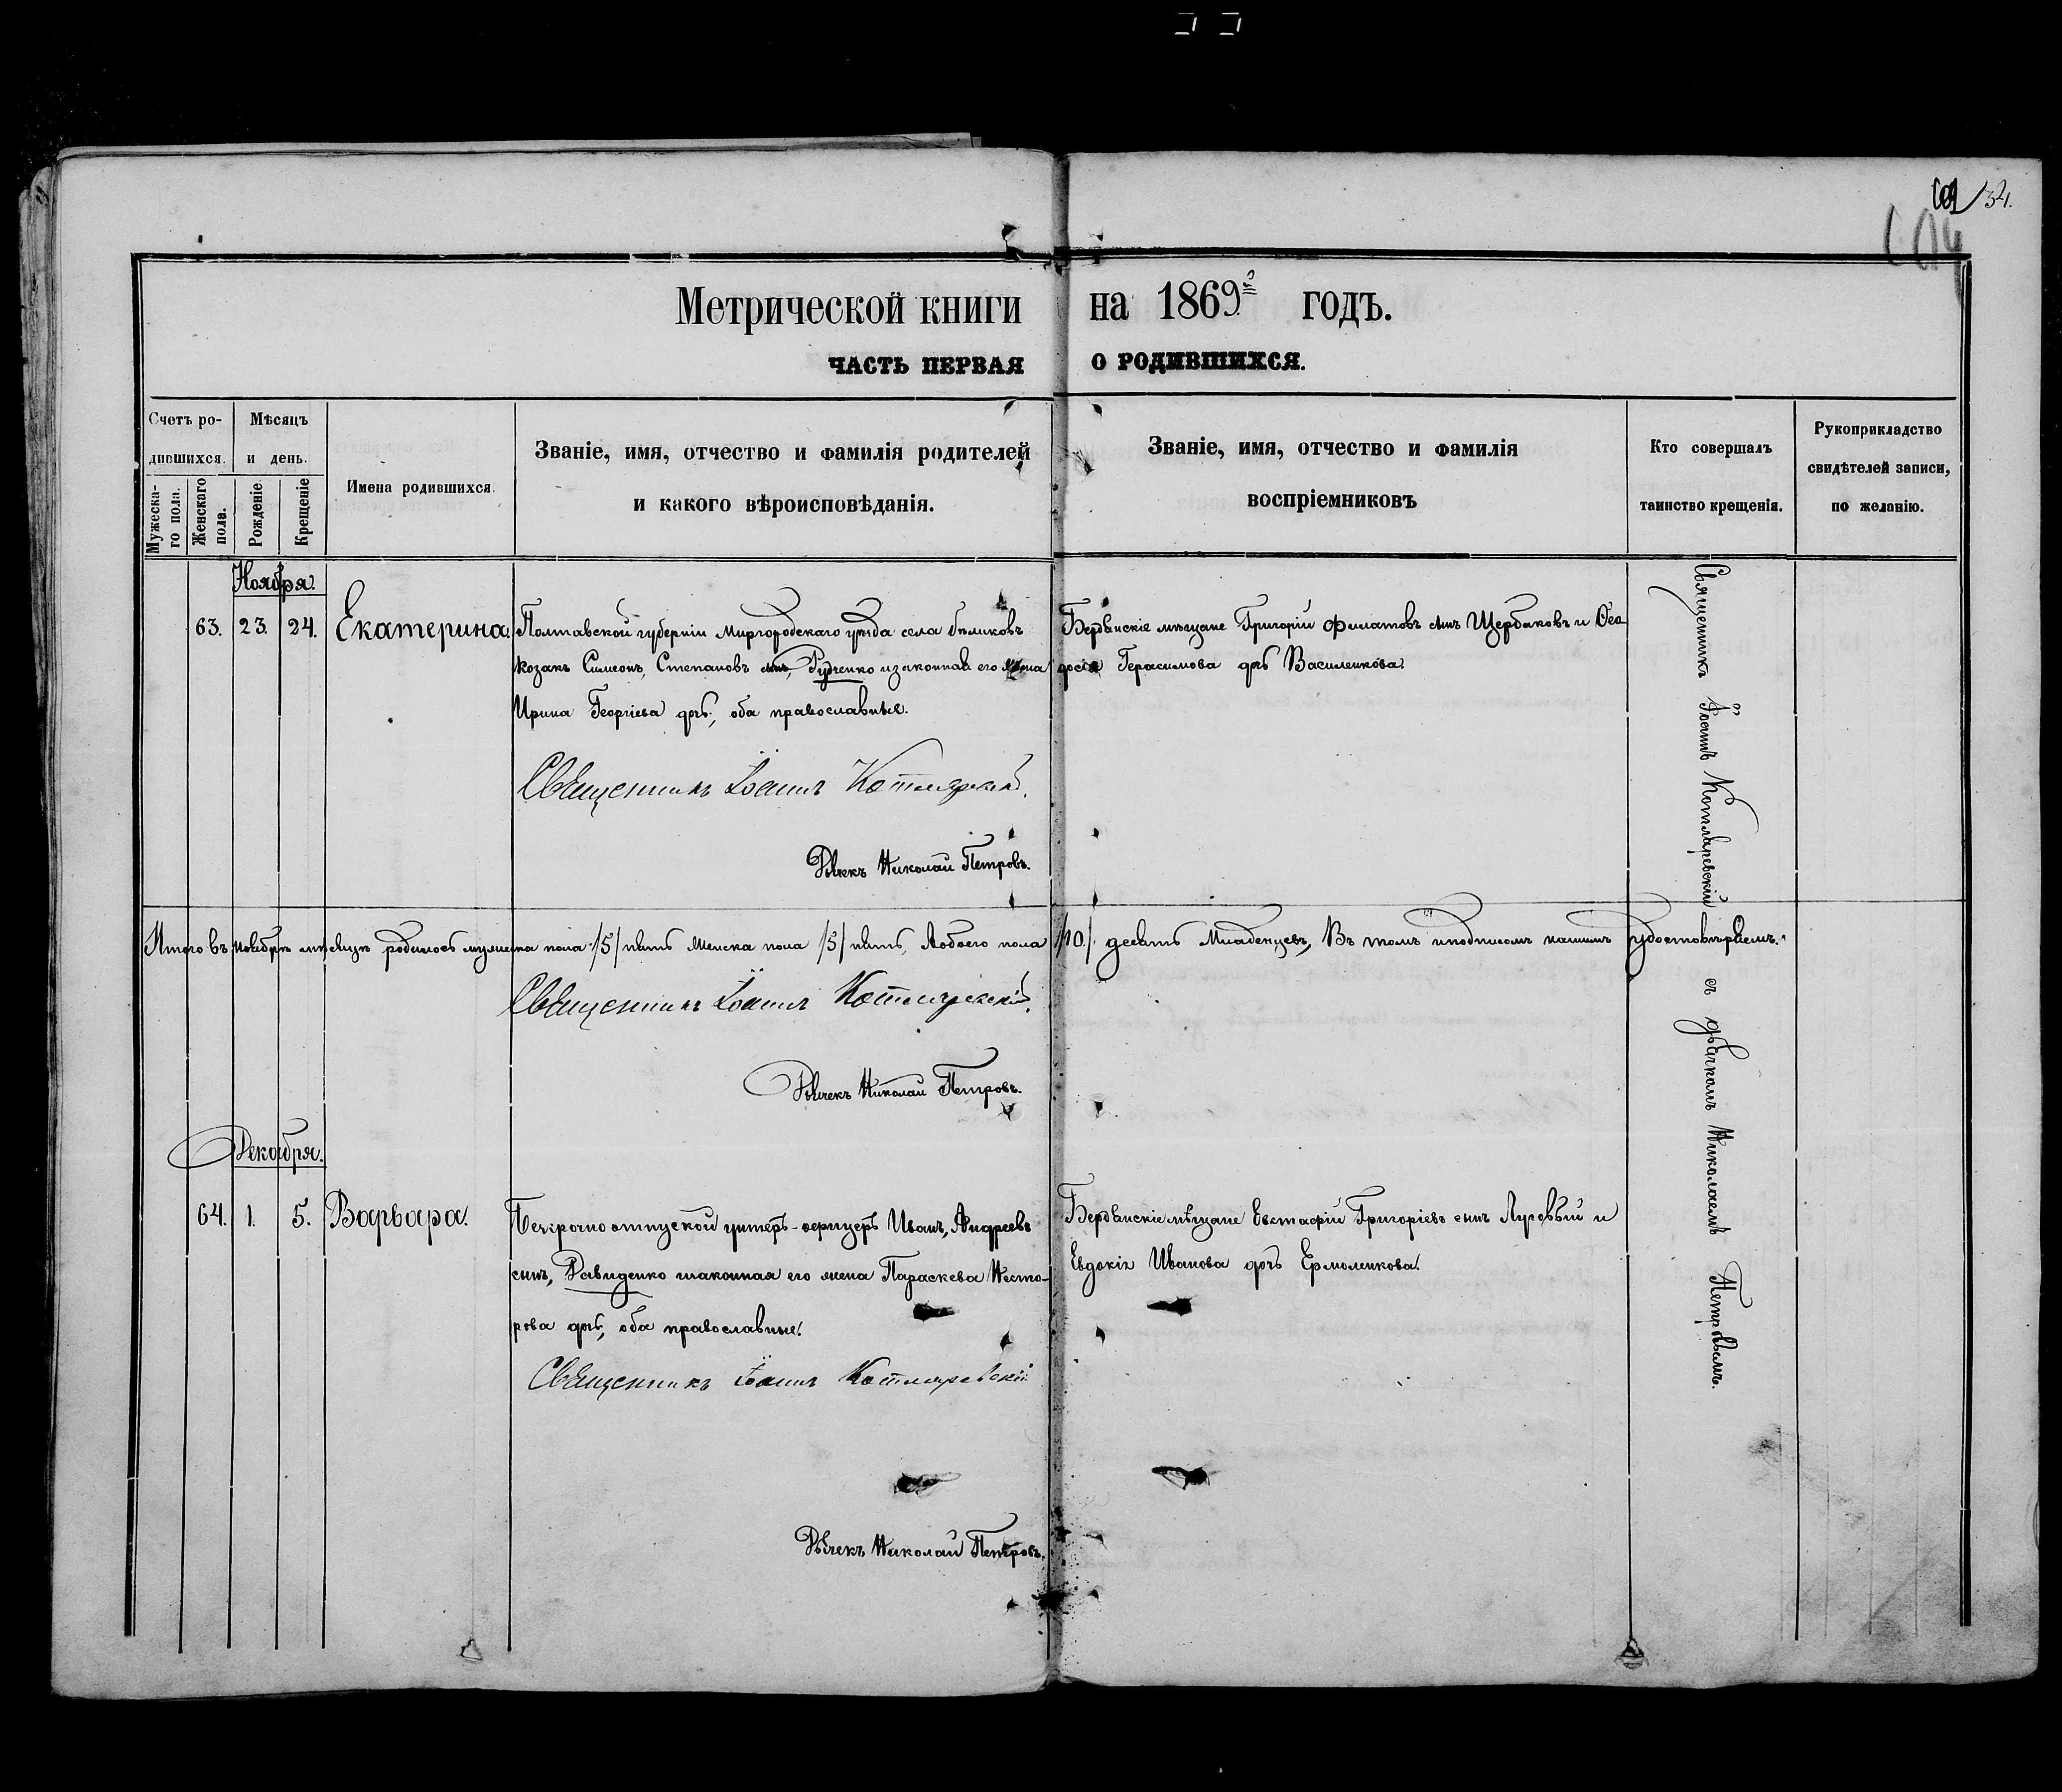 134.
104
Метрической книги на 1869й годъ.
ЧАСТЬ ПЕРВАЯ О РОДИВШИХСЯ.
Счетъ ро-
дившихся.
Мужеска-
го пола.
Женскаго
пола.
Мѣсяцъ
и день.
Рожденіе
Крещеніе
Имена родившихся.
Званіе, имя, отчество и фамилія родителей
и какого вѣроисповѣданія.
Званіе, имя, отчество и фамилія
воспріемниковъ
Кто совершалъ
таинство крещенія.
Рукоприкладство
свидѣтелей записи,
по желанію.
Ноября.
63. 23. 24. Екатерина.
Полтавской губерніи Миргородскаго уѣзда села
козакъ Симеонъ, Степановъ сынъ, Рудченко и законная его жена
Ирина Георгіева дочь, оба православные.
Священникъ Іоаннъ Котляревскій.
Дьячекъ Николай Петровъ.
Бердянскіе мѣщане Григорій Филатовъ сынъ Щербаковъ и Ѳео-
досія Герасимова дочь Василенкова.
Итого въ Ноябрѣ мѣсяцѣ родилось мужеска пола /5/ пять женска пола /5/ пять, А обоего пола /10/ десять Младенцевъ, Въ томъ и подписомъ нашимъ удостовѣряемъ.
Священникъ Іоаннъ Котляревскій.
Дьячекъ Николай Петровъ.
Декабря.
64. 1. 5. Варвара.
Безсрочно отпускной унтеръ-офицеръ Иванъ, Андреевъ
сынъ, Давиденко и законная его жена Параскева Несто-
рова дочь, оба православные.
Священникъ Іоаннъ Котляревскій
Дьячекъ Николай Петровъ.
Бердянскіе мѣщане Евстафій Григоріевъ сынъ Луговый и
Евдокія Иванова дочь Ермоленкова.
Священникъ Іоаннъ Котляревскій съ дьячкомъ Николаемъ Петровымъ.